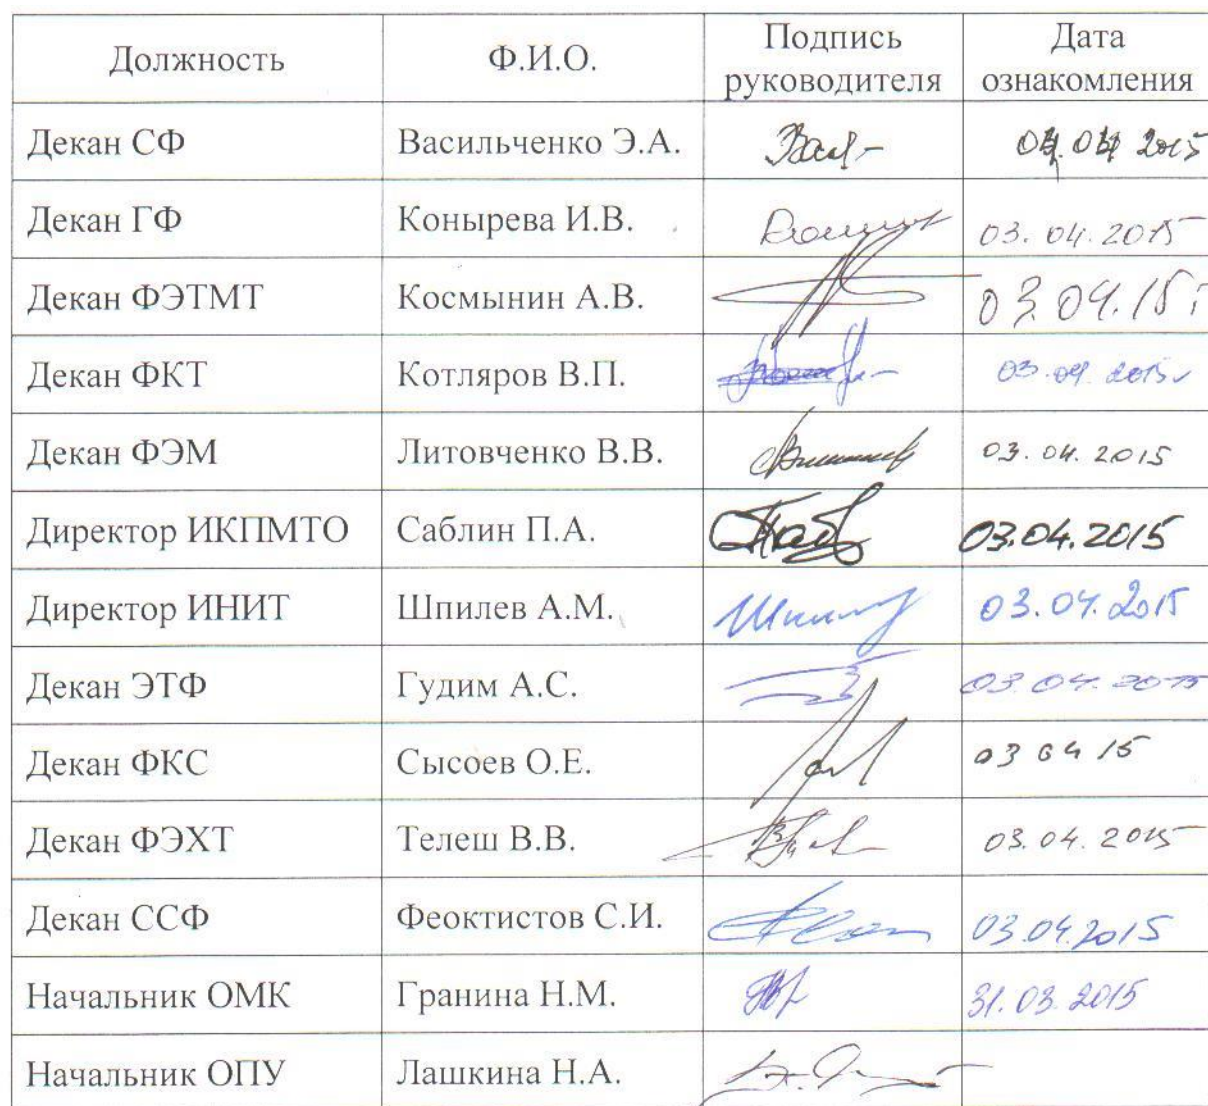 Должность Ф.И.О. Подпись руководителя Дата ознакомления
Декан СФ Васильченко Э.А. 2015
Декан ГФ Конырева И.В. 03.04.2015
Декан ФЭТМТ Космынин А.В. 03.04.15г
Декан ФКТ Котляров В.П. 03.04.2015г
Декан ФЭМ Литовченко В.В. 03.04.2015
Директор ИКПМТО Саблин П.А. 03.04.2015
Директор ИНИТ Шпилев А.М. 03.04.2015
Декан ЭТФ Гудим А.С. 03.04.2015
Декан ФКС Сысоев О.Е. 03 04 15
Декан ФЭХТ Телеш В.В. 03.04.2015
Декан ССФ Феоктистов С.И. 03.04.2015
Начальник ОМК Гранина Н.М. 31.03.2015
Начальник ОПУ Лашкина Н.А.